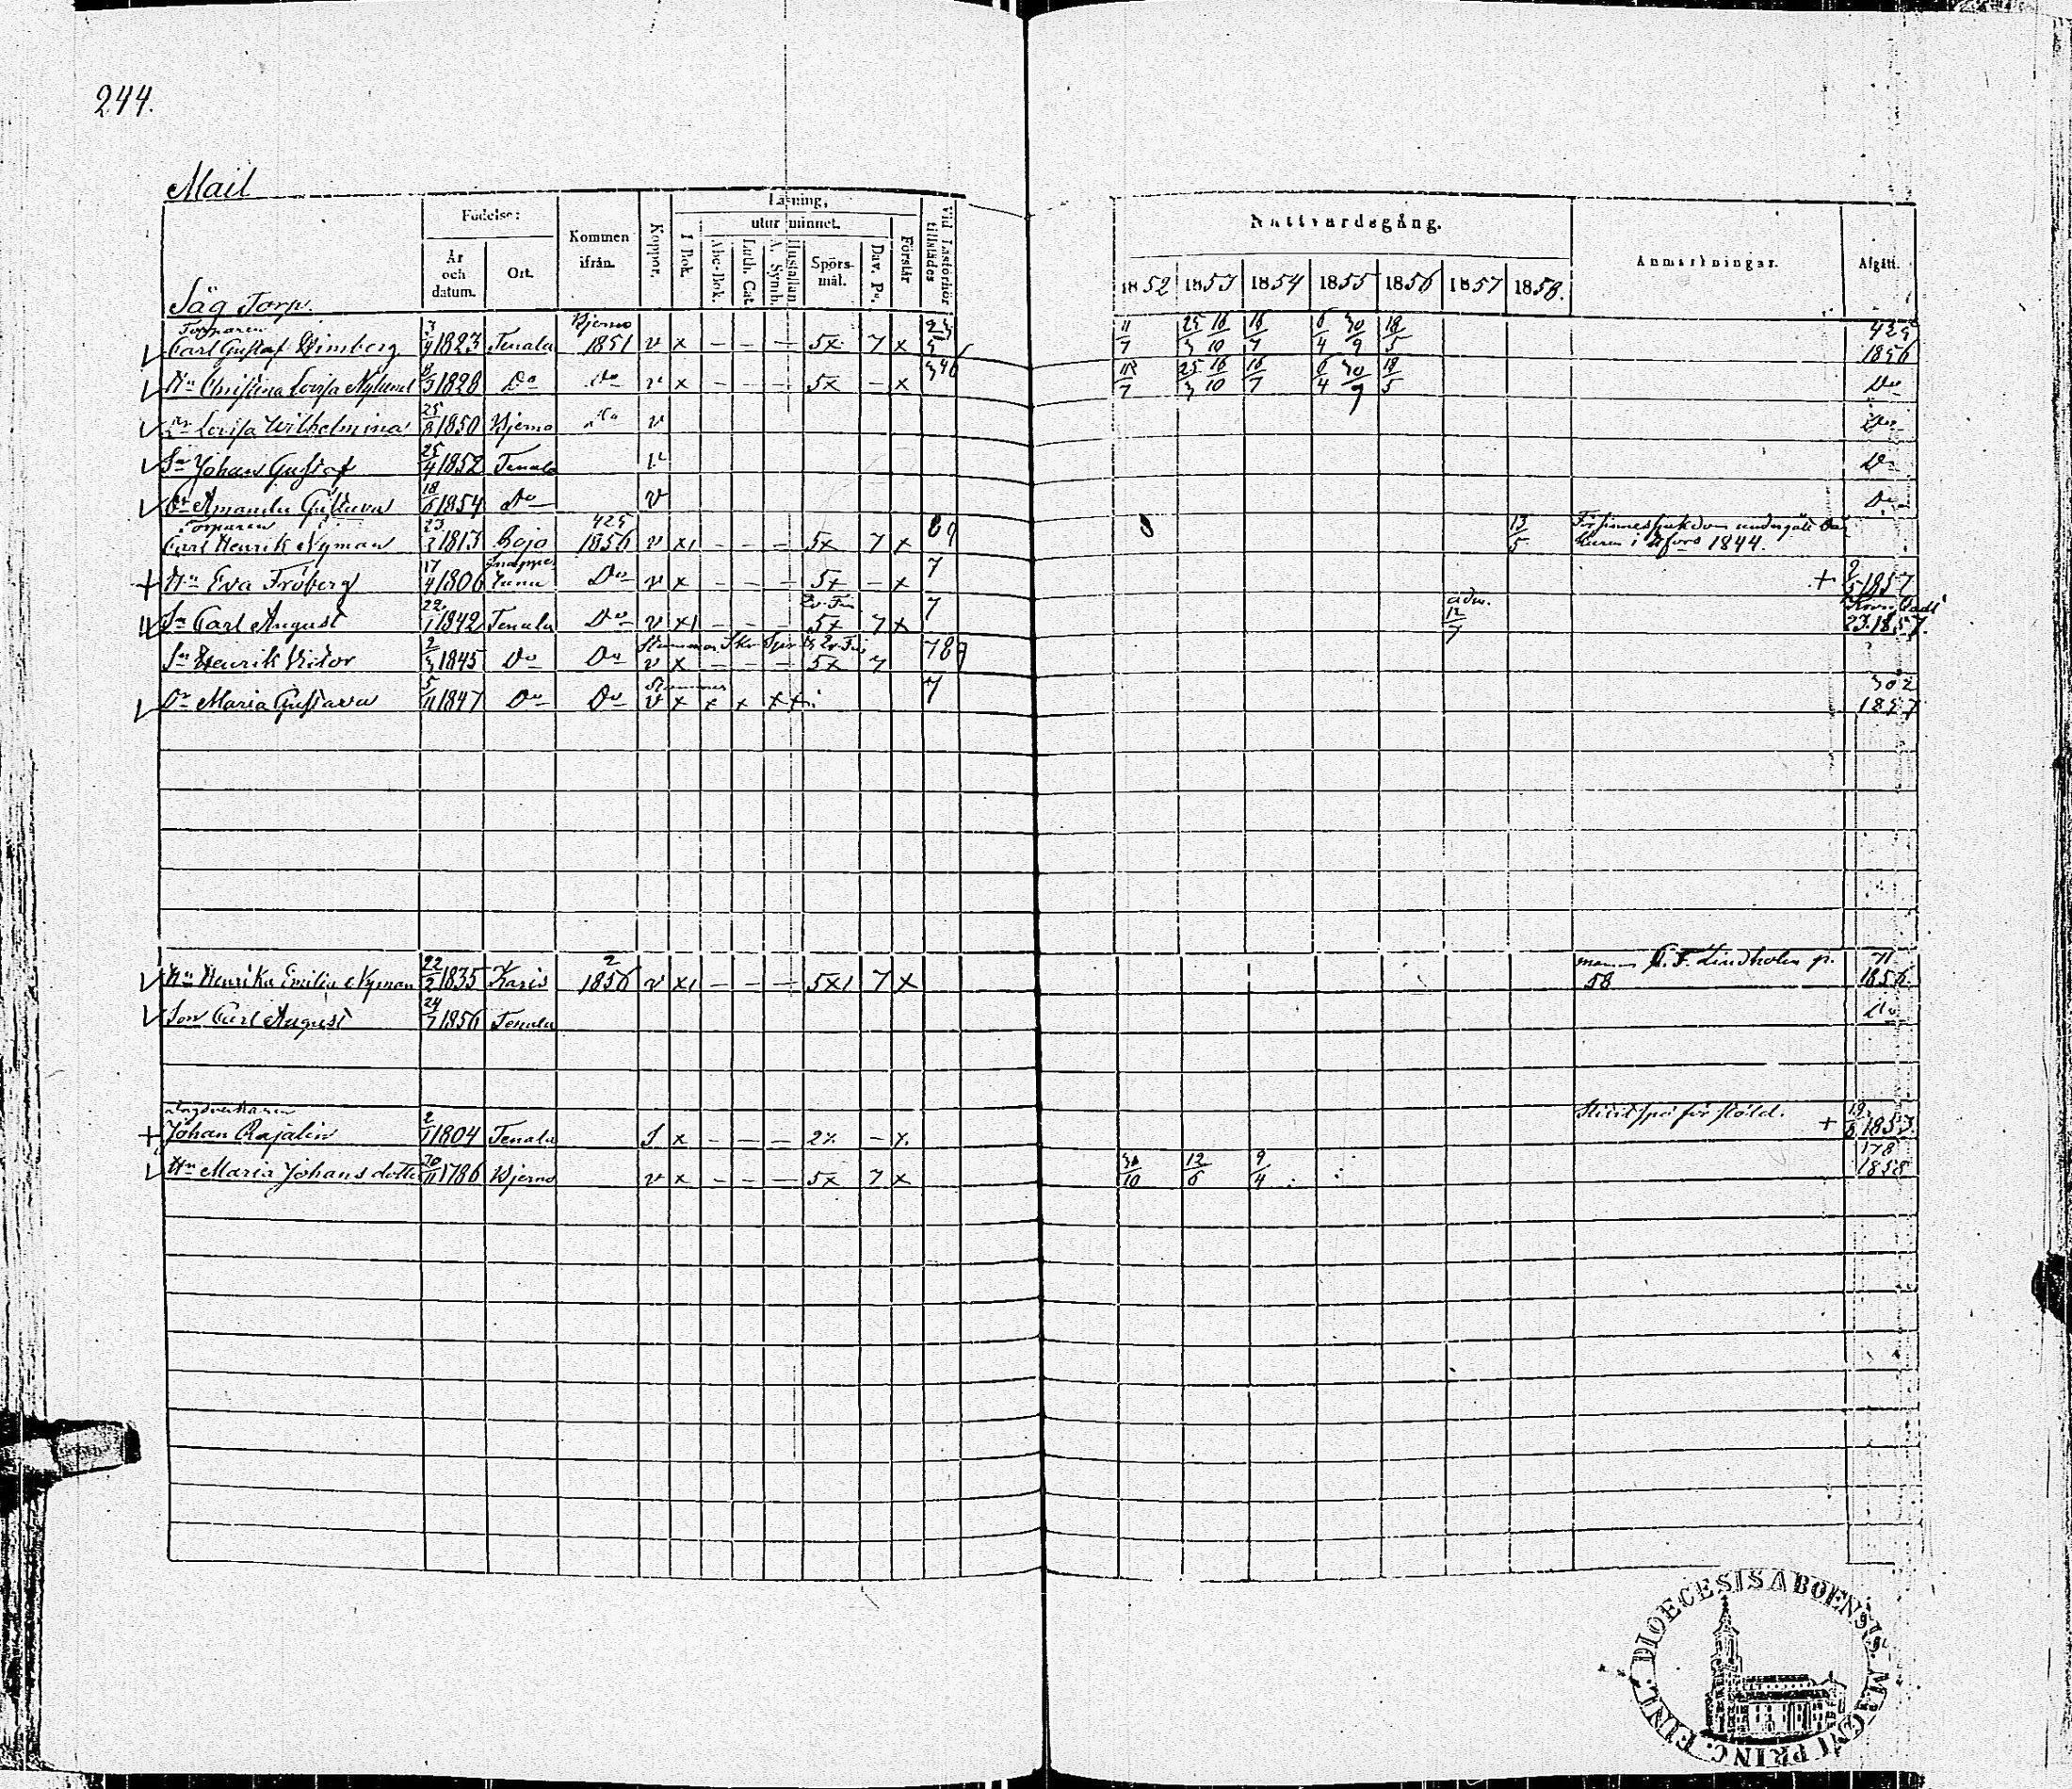 244.
Mail
Säg Torp.
Födelse:
År och datum.
Ort.
Kommen ifrån.
Koppor.
Läsning,
I Bok.
utur minnet.
Abc-Bok.
Luth. Cat.
A. Symb.
Hustaflan.
Spörsmål.
Dav. Ps.
Förstår
Vid Läsförhör tillstädes
Nattvardsgång.
1852 1853 1854 1855 1856 1857 1858.
Anmärkningar.
Afgått.
Torparen Bjerno
Carl Gustaf 3/4 1823 Tenala 1851 v x – – – 5x 7 x 11/7 25/3 16/10 16/7 6/4 30/9 18/5 1856
Hu Christina Lovisa Nylund 1828 Do Do v x – – – 5x – x 25/3 16/10 16/7 6/4 30/9 18/5 Do
Dr Lovisa Wilhelmina 25/8 1850 Bjerno Do v Do
Sn Johan Gustaf 25/4 1852 Tenala v Do
Dr Amanda Gustava 18/6 1854 Do v Do
Torparen 425
Carl Henrik Nyman 23/2 1813 Bojo 1856 v x1 – – – 5x 7 x 13/5 i Hfors 1844.
Hu Eva Fröberg 17/4 1806 Do v x – – – 5x – x 7 + 2/5 1857
Sn Carl August 22/1 1842 Tenala Do v x1 – – – 5x 7 x 7 adm. 12/7 1857.
Sn Henrik Victor 2/3 1845 Do Do v x 5x 7 789
Dr Maria Gustava 5/11 1847 Do Do v x x x x x 7 302 1857
Hu Henrika Emilia Nyman 22/2 1835 Karis 2 1856 v x1 – – – 5x1 7 x C. F. Lindholm p. 58 71 1856.
Son Carl August 24/7 1856 Tenala Do
Johan Rajalin 2/1 1804 Tenala S x – – – 2x – x. för stöld. + 19/8 1853
Hu Maria Johansdotter 1786 Bjerno v x – – – 5x 7 x 30/10 12/6 9/4 178 1858
DIOECESIS ABOENSIS. MAGNI PRINC. FINL.